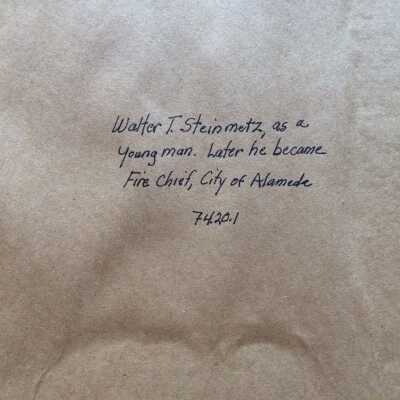 Walter T. Steinmetz, as a
young man. Later he became
Fire Chief, City of Alameda
7420.1